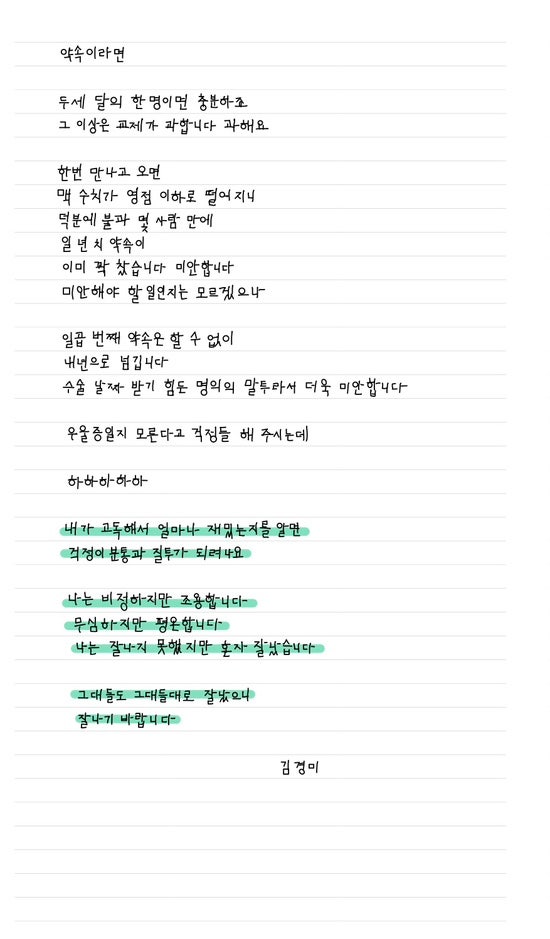 약속이라면
두세 달의 한 명이면 충분하죠
그 이상은 교제가 과합니다 과해요
한번 만나고 오면
맥 수치가 영점 이하로 떨어지니
덕분에 불과 몇 사람 만에
일 년 치 약속이
이미 꽉 찼습니다 미안합니다
미안해야 할 일인지는 모르겠으나
일곱 번째 약속은 할 수 없이
내년으로 넘깁니다
수술 날짜 받기 힘든 명의의 말투라서 더욱 미안합니다
우울증일지 모른다고 걱정들 해 주시는데
하하하하하
내가 고독해서 얼마나 재밌는지를 알면
걱정이 분통과 질투가 되려나요
나는 비정하지만 조용합니다
무심하지만 평온합니다
나는 잘나지 못했지만 혼자 잘났습니다
그대들도 그대들대로 잘났으니
잘나기 바랍니다
김경미